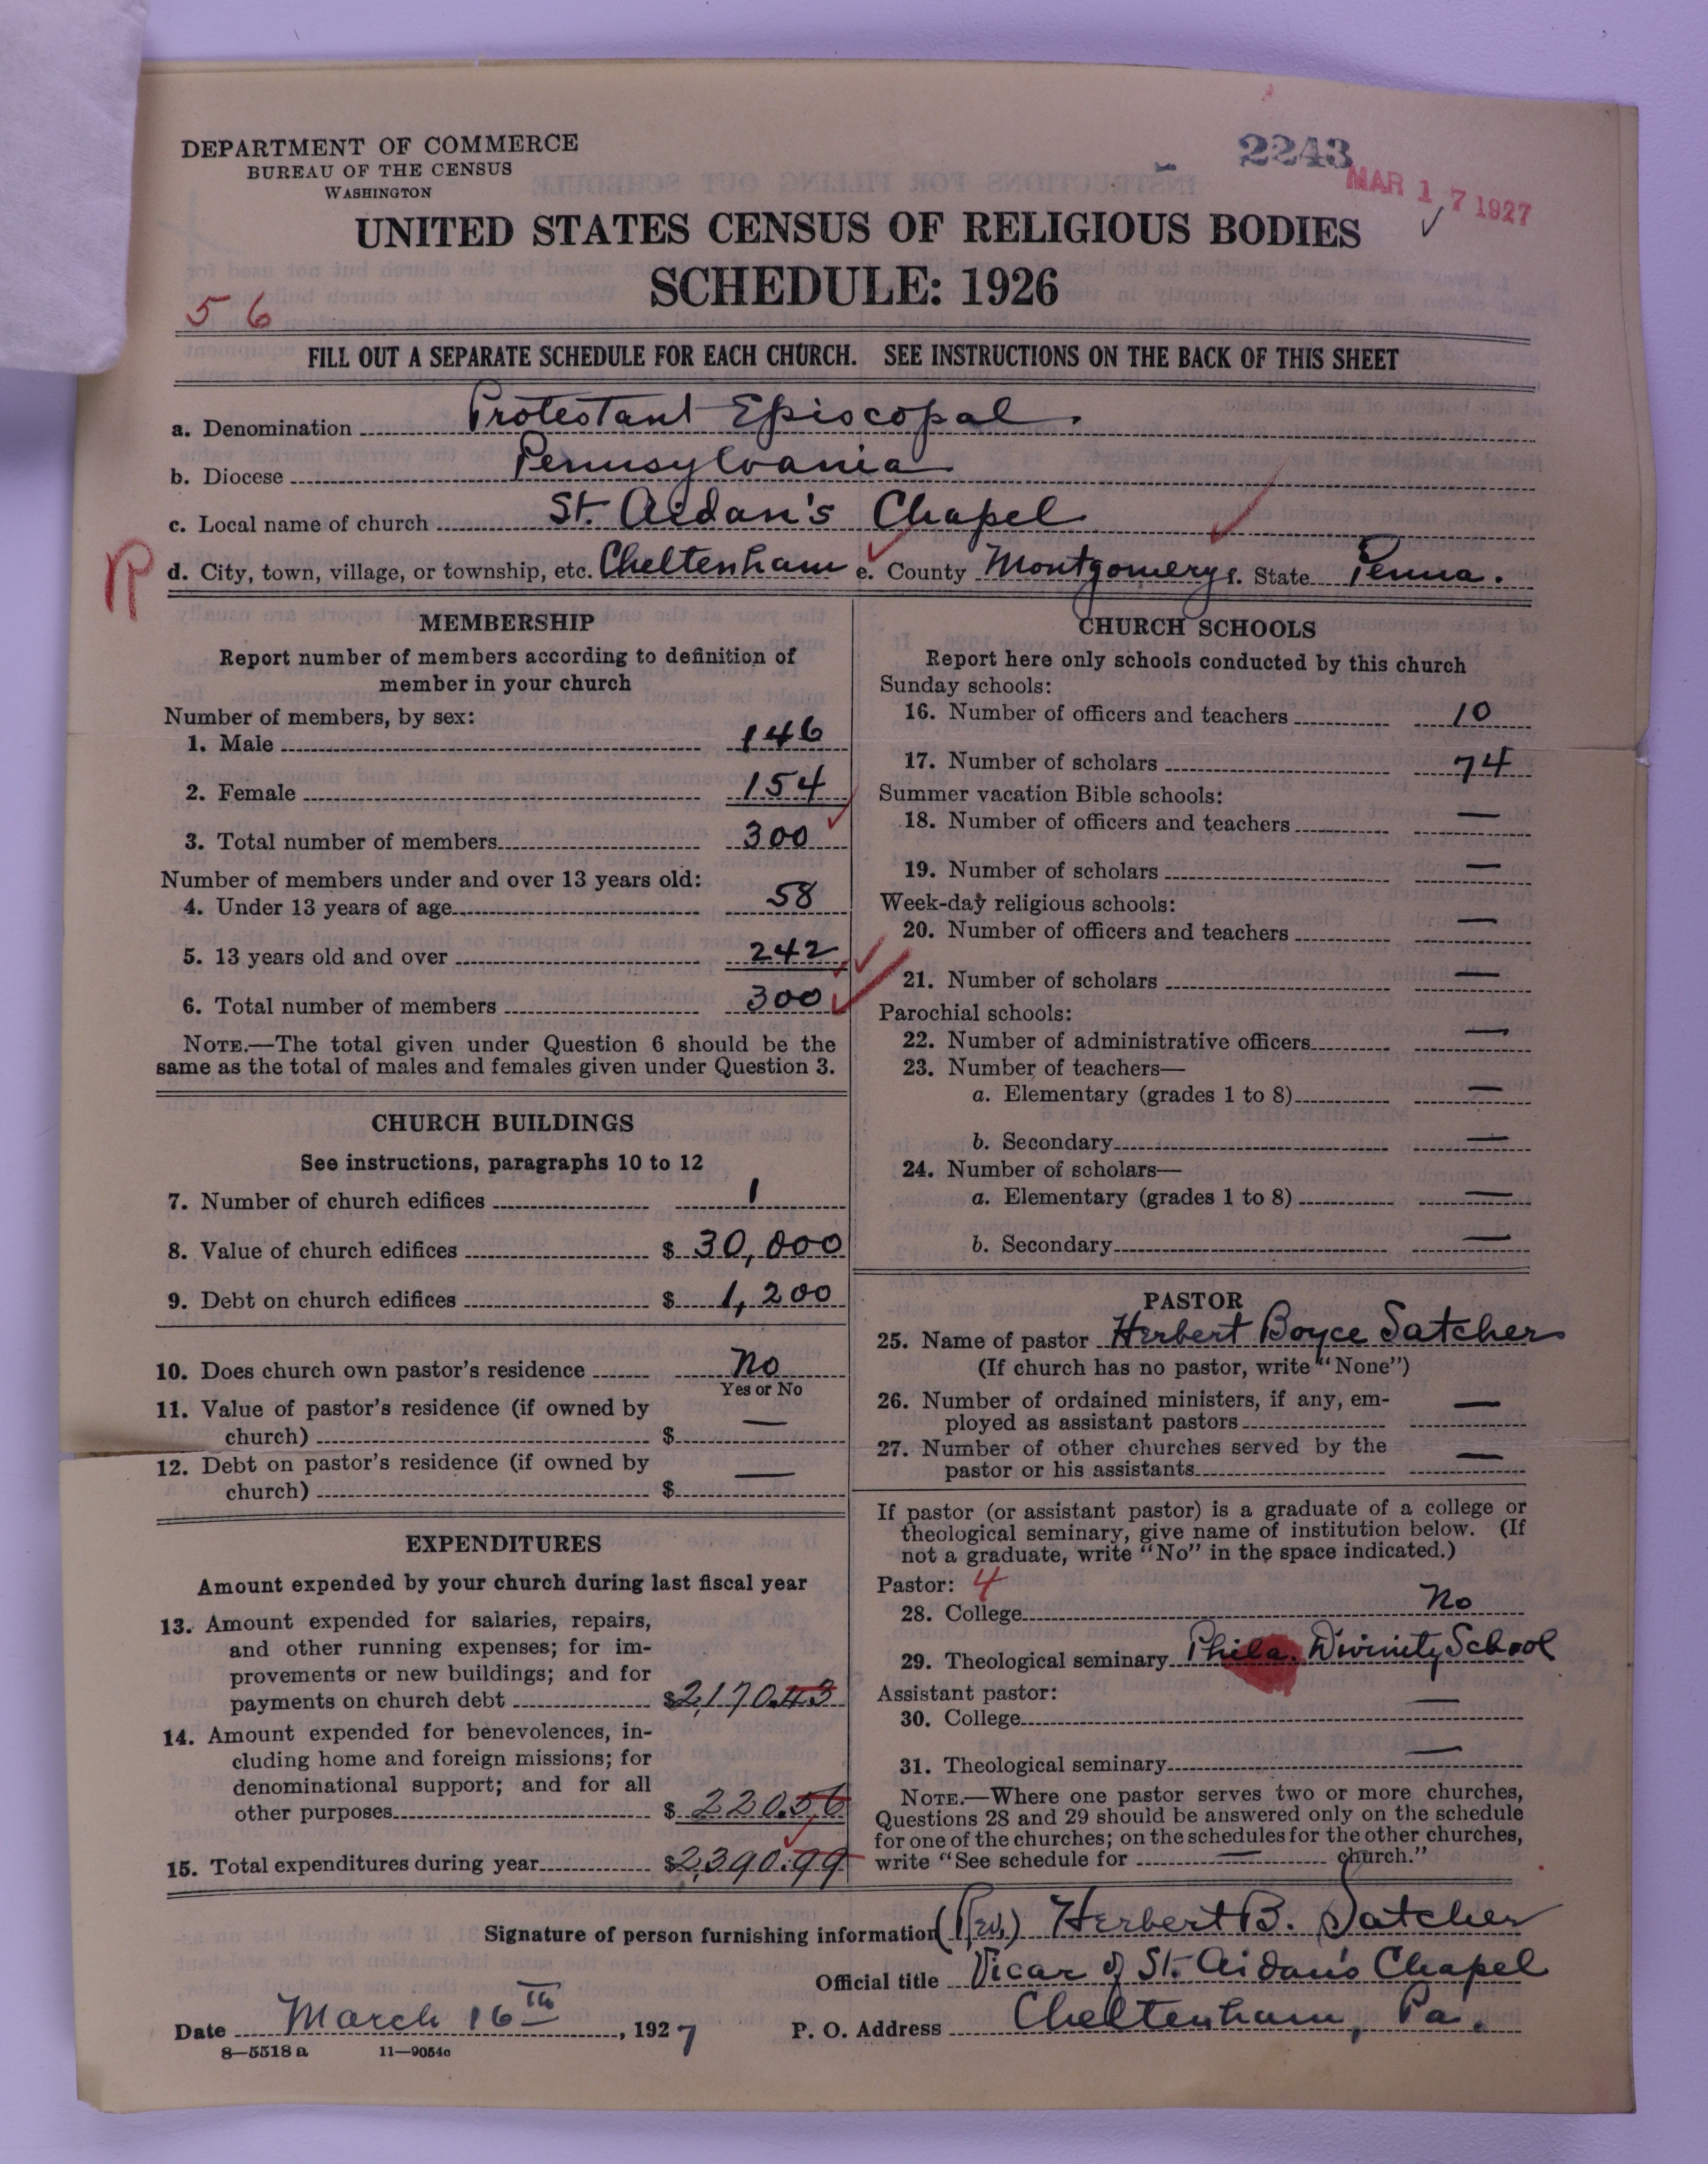 DEPARTMENT OF COMMERCE
BUREAU OF THE CENSUS
WASHINGTON
2243
MAR 17 1927
UNITED STATES CENSUS OF RELIGIOUS BODIES
SCHEDULE: 1926
5 6
FILL OUT A SEPARATE SCHEDULE FOR EACH CHURCH. SEE INSTRUCTIONS ON THE BACK OF THIS SHEET
a. Denomination Protestant Episcopal.
b. Diocese Pennsylvania
c. Local name of church St. Aidan's Chapel
R d. City, town, village, or township, etc. Cheltenham e. County Montgomery f. State Penna.
MEMBERSHIP
Report number of members according to definition of
member in your church
Number of members, by sex:
1. Male 146
2. Female 154
3. Total number of members 300
Number of members under and over 13 years old:
4. Under 13 years of age 58
5. 13 years old and over 242
6. Total number of members 300
NOTE.—The total given under Question 6 should be the
same as the total of males and females given under Question 3.
CHURCH BUILDINGS
See instructions, paragraphs 10 to 12
7. Number of church edifices 1
8. Value of church edifices $ 30,000
9. Debt on church edifices $ 1,200
10. Does church own pastor's residence No
Yes or No
11. Value of pastor's residence (if owned by
church) $ —
12. Debt on pastor's residence (if owned by
church) $ —
EXPENDITURES
Amount expended by your church during last fiscal year
13. Amount expended for salaries, repairs,
and other running expenses; for im-
provements or new buildings; and for
payments on church debt $2,170.43
14. Amount expended for benevolences, in-
cluding home and foreign missions; for
denominational support; and for all
other purposes $ 220.56
15. Total expenditures during year $2,390.99
CHURCH SCHOOLS
Report here only schools conducted by this church
Sunday schools:
16. Number of officers and teachers 10
17. Number of scholars 74
Summer vacation Bible schools:
18. Number of officers and teachers —
19. Number of scholars —
Week-day religious schools:
20. Number of officers and teachers —
21. Number of scholars —
Parochial schools:
22. Number of administrative officers —
23. Number of teachers—
a. Elementary (grades 1 to 8) —
b. Secondary —
24. Number of scholars—
a. Elementary (grades 1 to 8) —
b. Secondary —
PASTOR
25. Name of pastor Herbert Boyce Satcher
(If church has no pastor, write "None")
26. Number of ordained ministers, if any, em-
ployed as assistant pastors —
27. Number of other churches served by the
pastor or his assistants —
If pastor (or assistant pastor) is a graduate of a college or
theological seminary, give name of institution below. (If
not a graduate, write "No" in the space indicated.)
Pastor: 4
28. College No
29. Theological seminary Phila. Divinity School
Assistant pastor:
30. College —
31. Theological seminary —
NOTE.—Where one pastor serves two or more churches,
Questions 28 and 29 should be answered only on the schedule
for one of the churches; on the schedules for the other churches,
write "See schedule for — church."
Signature of person furnishing information (Rev.) Herbert B. Satcher
Official title Vicar of St. Aidan's Chapel
Date March 16th, 1927 P. O. Address Cheltenham, Pa.
8—5518 a 11—9054c